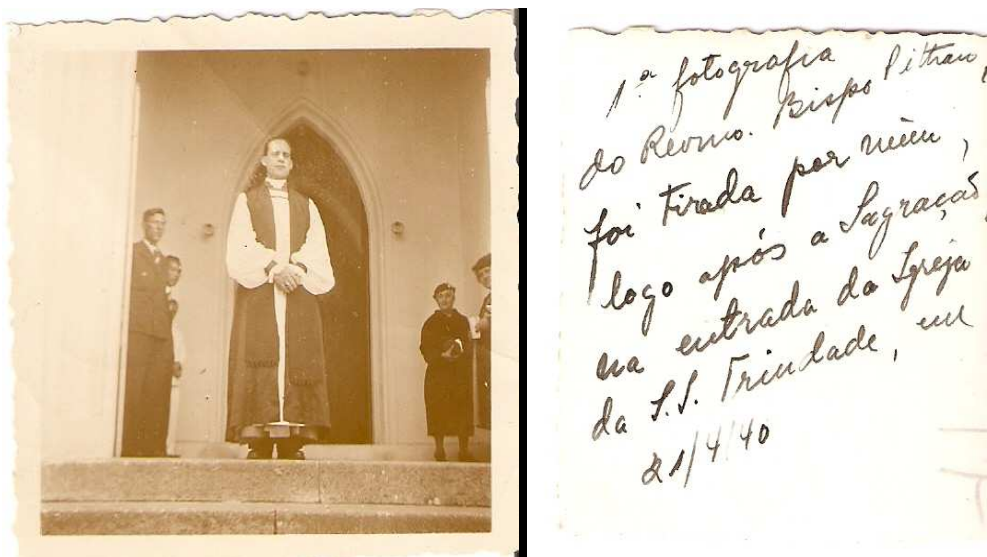 1ª fotografia
do Revmo. Bispo Pithan,
foi tirada por mim,
logo após a Sagração,
na entrada da Igreja
da S.S. Trindade, em
21/4/40